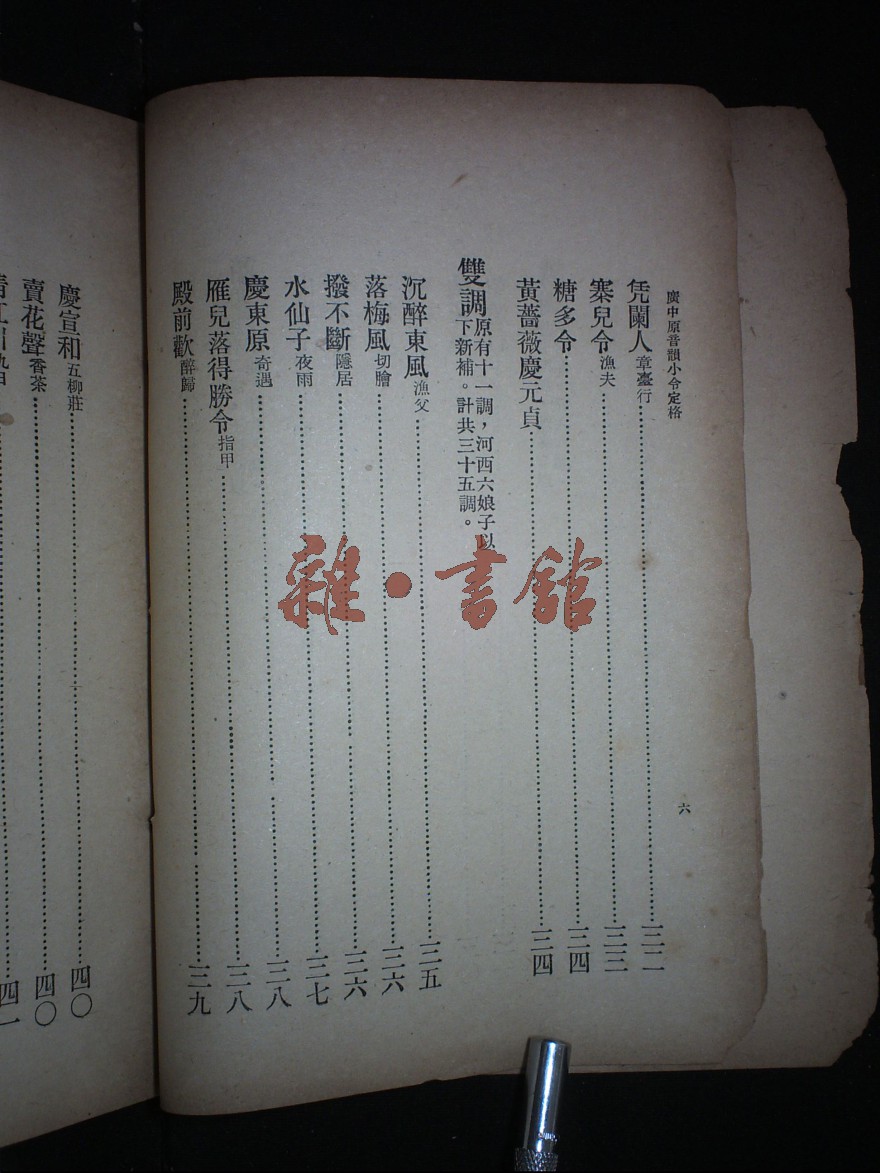 廣中原音韻小令定格
六
凭闌人章臺行……三二
寨兒令漁夫……三三
糖多令……三四
黃薔薇慶元貞……三四
雙調原有十一調，河西六娘子以
下新補。計共三十五調。
沉醉東風漁父……三五
落梅風切膾……三六
撥不斷隱居……三六
水仙子夜雨……三七
慶東原奇遇……三八
雁兒落得勝令指甲……三八
殿前歡醉歸……三九
慶宣和五柳莊……四〇
賣花聲香茶……四〇
四一
雜·書館